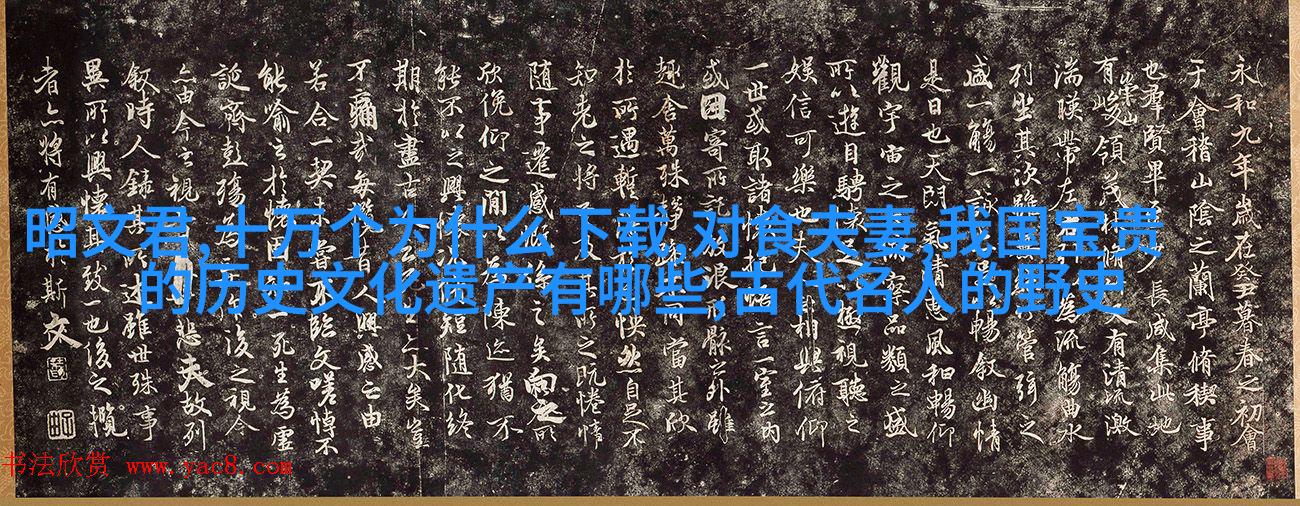 永和九年歲在癸丑暮春之初會
于會稽山陰之蘭亭脩稧事
也羣賢畢少長咸集此地
有崇山峻領茂林有清流激
湍暎帶左為流觴曲水
列坐其次雖管弦之
盛一觴一詠暢叙幽情
是日也天朗氣清惠風和暢仰
觀宇宙之察品類之盛
所以遊目騁極視聽之
娛信可樂也夫相與俯仰
一世或取諸懷抱悟言一室之內
或因寄所託放浪形骸之外雖
趣舍萬殊靜同當其欣
於所遇暫怏然自足不
知老之將及所之既惓情
隨事遷感慨係之矣向之所
欣俛仰之閒以陳迹猶不
能不以之興短隨化終
期於盡古之大矣豈
不痛哉每昔人興感之由
若合一契未嘗不臨文嗟悼不
能喻之於懷死生為虛
誕齊彭殤為後之視今
亦由今之視悲夫故列
叙時人錄其述雖世殊事
異所以興懷其致一也後之攬
者亦將有斯文
昭文君,十万个为什么下载,对食夫妻,我国宝贵
的历史文化遗产有哪些,古代名人的野史
书法欣赏 www.yac8.com